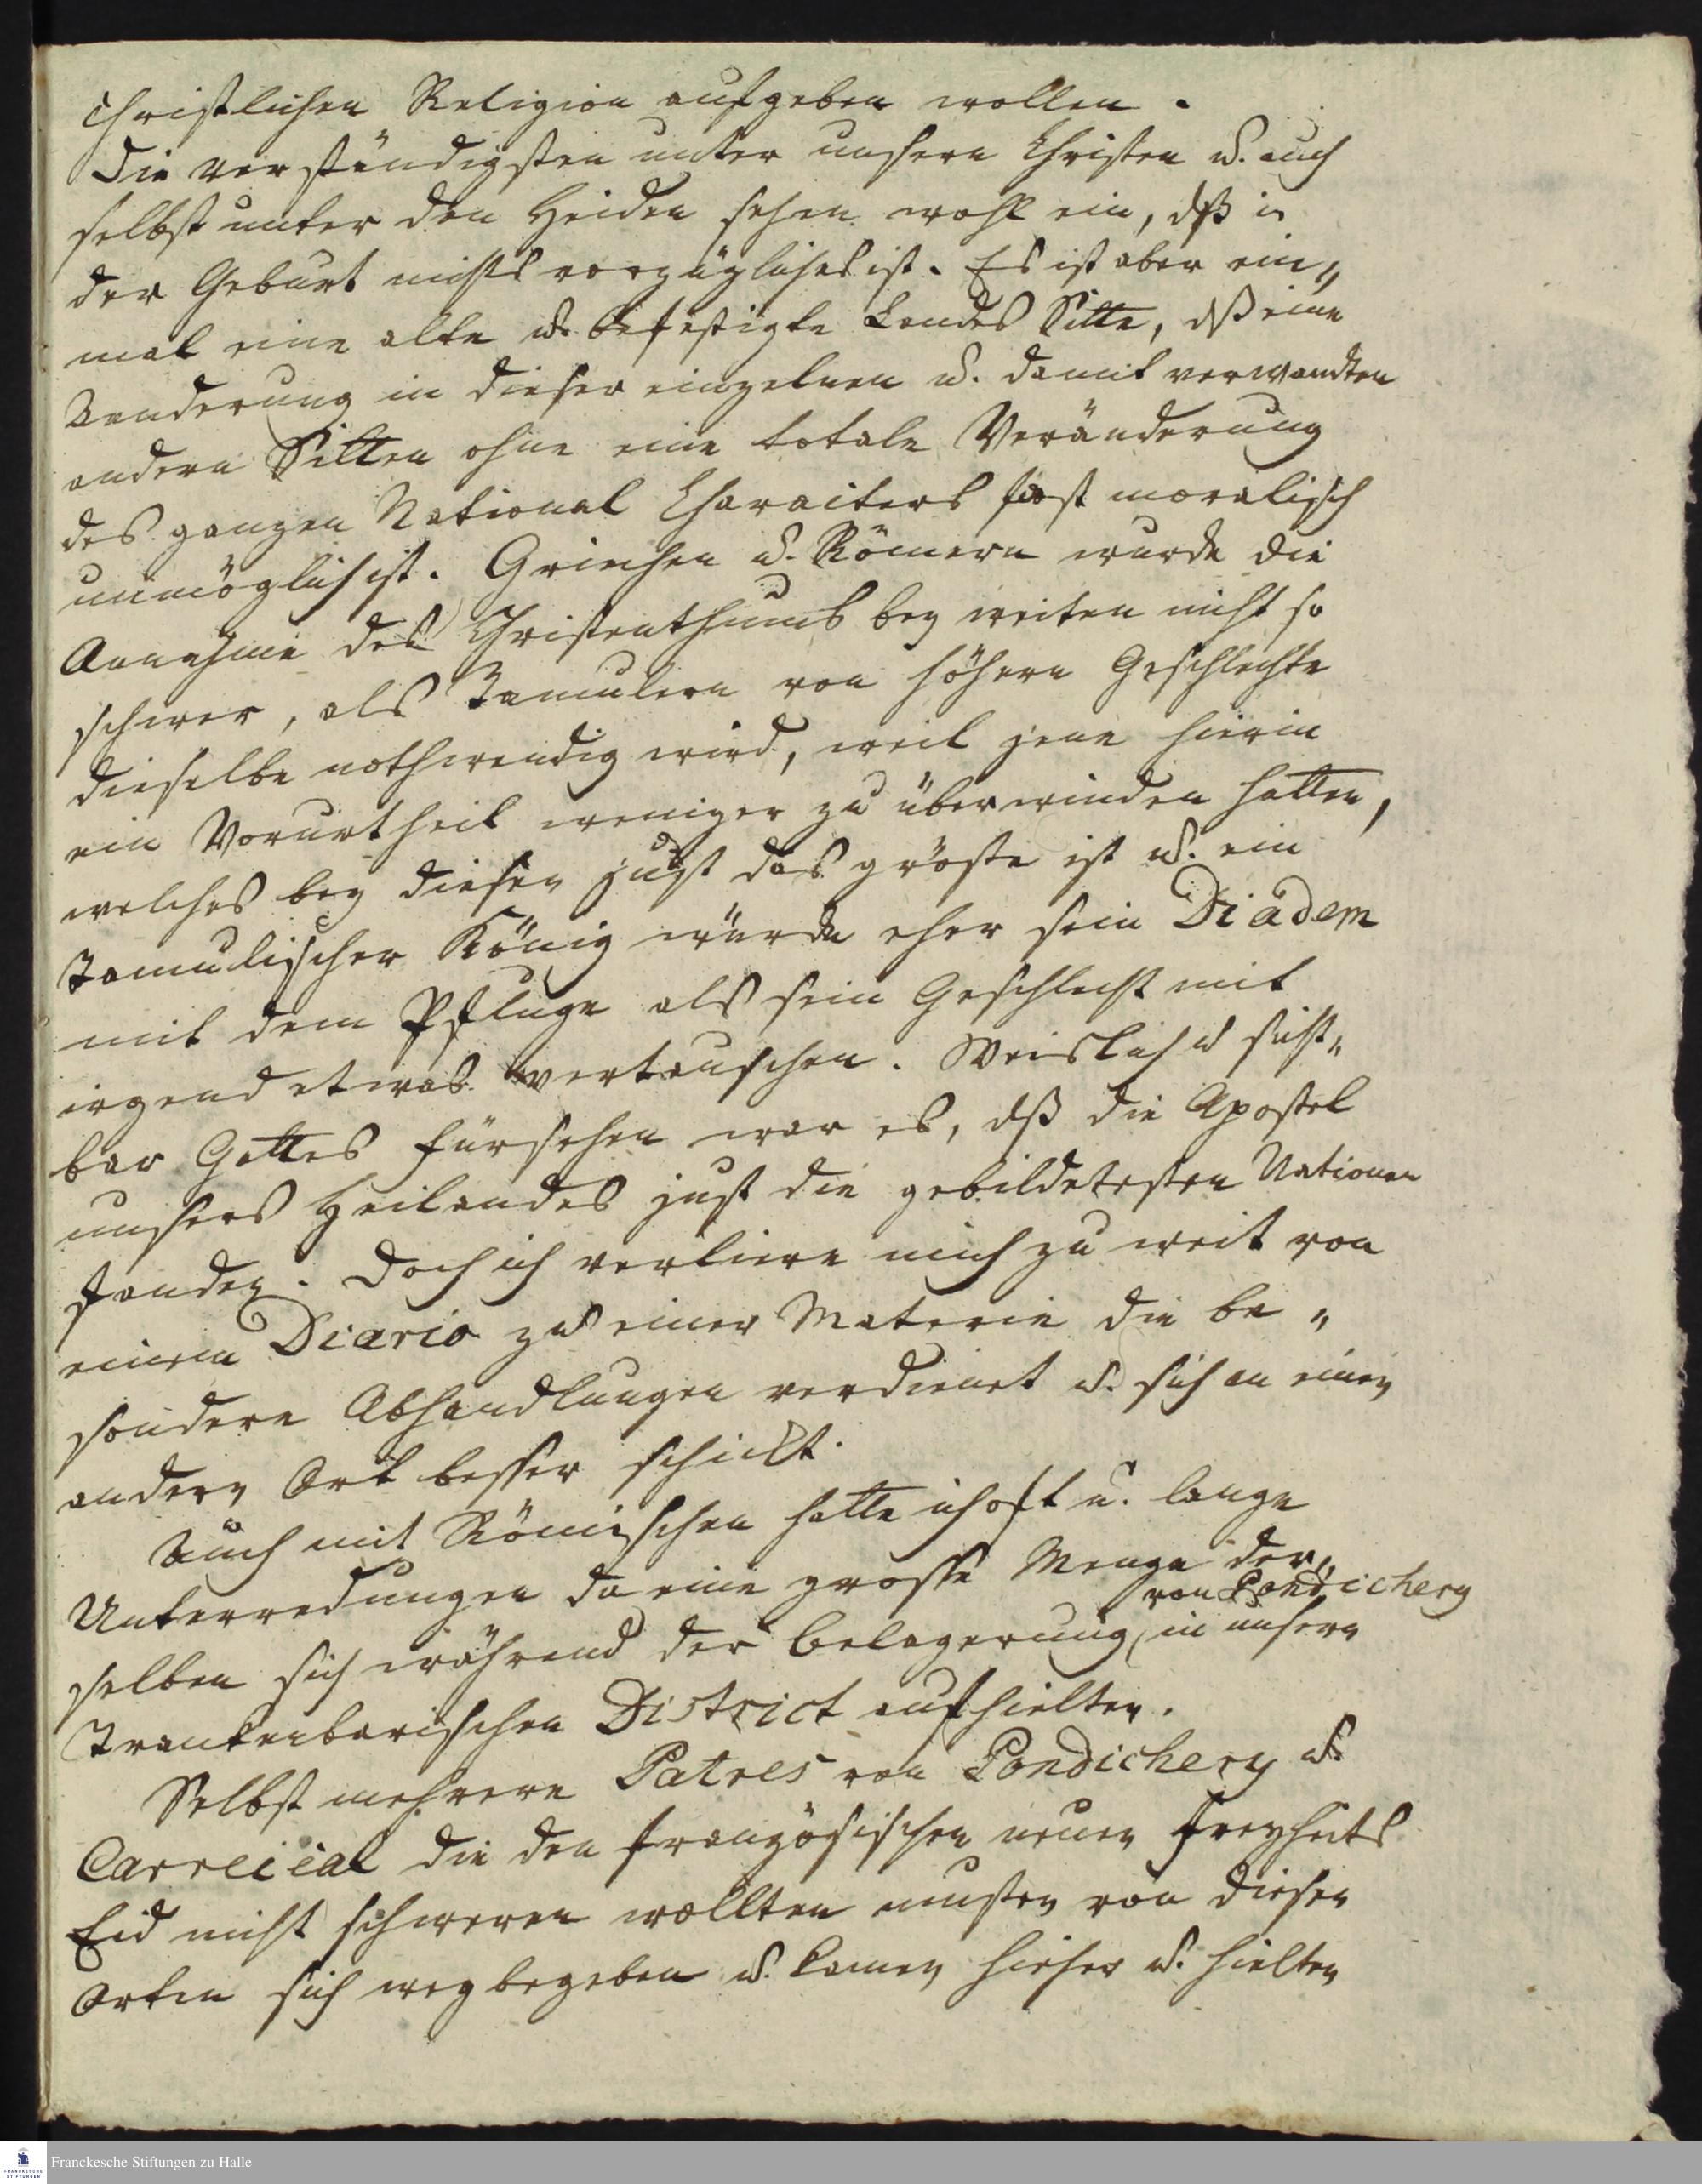 christlichen Religion aufgeben wollen.
Die verständigsten unter unsern Christen u. auch
selbst unter den Heiden sehen wohl ein, dß in
der Geburt nichts vorzügliches ist. Es ist aber ein„
mal eine alte u. befestigte Landes Sitte, dß eine
Aenderung in dieser einzelnen u. damit verwandten
andern Sitten ohne eine totale Veränderung
des ganzen National Charaiters fast moralisch
unmöglich ist. Griechen u. Römern wurde die
Annahme des Christenthums bey weiten nicht so
schwer, als Tamulern von höhern Geschlechte
dieselbe nothwendig wird, weil jene hierin
ein Vorurtheil weniger zu überwinden hatten,
welches bey diesen just das gröste ist u. ein
Tamulischer König würde eher sein Diadem
mit dem Pfluge als sein Geschlecht mit
irgend etwas vertauschen. Weislich u sicht„
bar Gottes Fürsehen war es, dß die Apostel
unsers Heilandes just die gebildetesten Nationen
fanden. Doch ich verliere mich zu weit von
einem Diario zu einer Materie die be„
sondere Abhandlungen verdienet u. sich an einen
andern Ort besser schickt.
Auch mit Römischen hatte ich oft u. lange
Unterredungen da eine grosse Menge der„
von Pondichery
selben sich während der Belagerung in unsern
Trankenbarischen District aufhielten.
Selbst mehrere Patres von Pondichery u.
Carreical die den französischen neuen Freyheits
Eid nicht schweren wollten musten von diesen
Orten sich wegbegeben u. kamen hieher u. hielten
Franckesche Stiftungen zu Halle
FRANCKESCHE
STIFTUNGEN